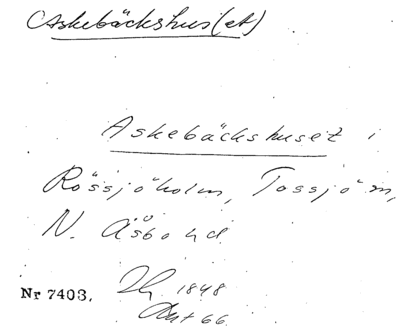 Askebäckshus(et)
Askebäckshuset i
Rössjöholm, Tossjö sn,
N. Åsbo hd.
Nr 7403.
1848
66